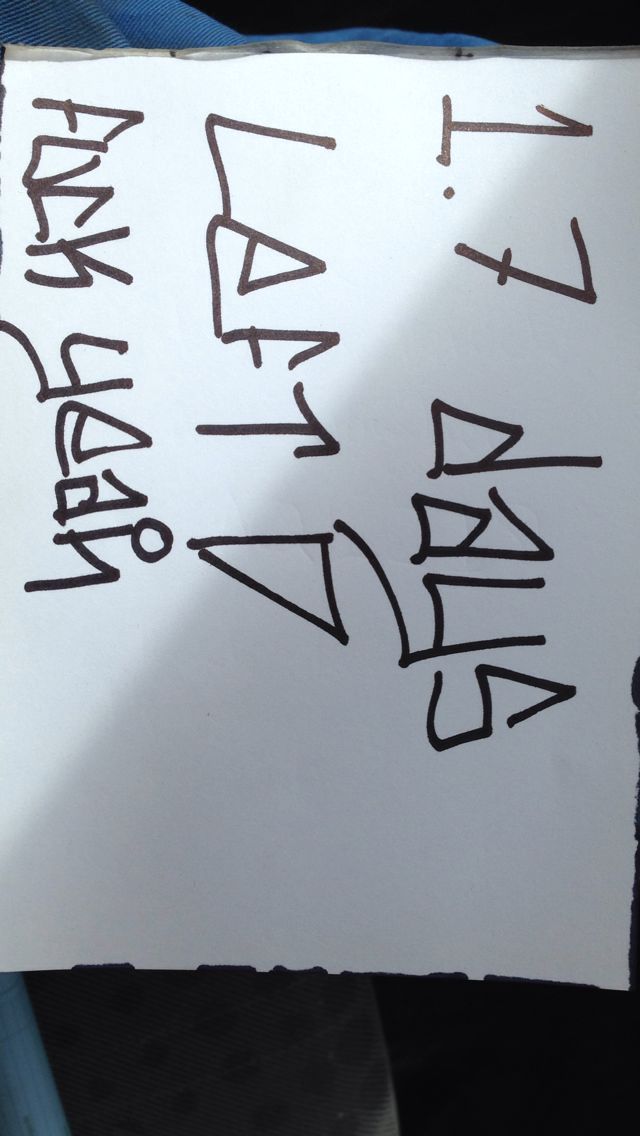 1.7 days
Left D
Fuck yeah